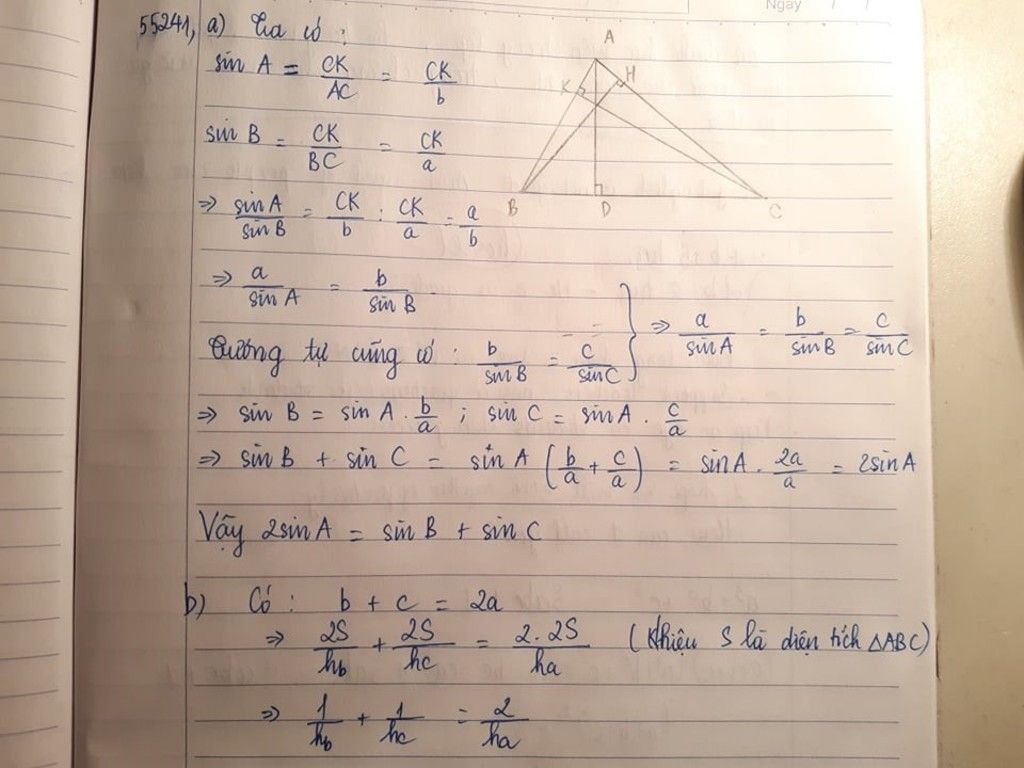 Ngày / /
55241, a) Ta có :
sin A = CK/AC = CK/b
sin B = CK/BC = CK/a
=> sinA/sinB = CK/b : CK/a = a/b
=> a/sin A = b/sin B
Tương tự cũng có : b/sin B = c/sinC } => a/sinA = b/sinB = c/sinC
=> sin B = sin A . b/a ; sin C = sinA . c/a
=> sin B + sin C = sin A (b/a + c/a) = sinA . 2a/a = 2sinA
Vậy 2sinA = sin B + sin C
b) Có : b + c = 2a
=> 2S/hb + 2S/hc = 2.2S/ha ( Khiệu S là diện tích △ABC)
=> 1/hb + 1/hc = 2/ha
A
K
H
B
D
C